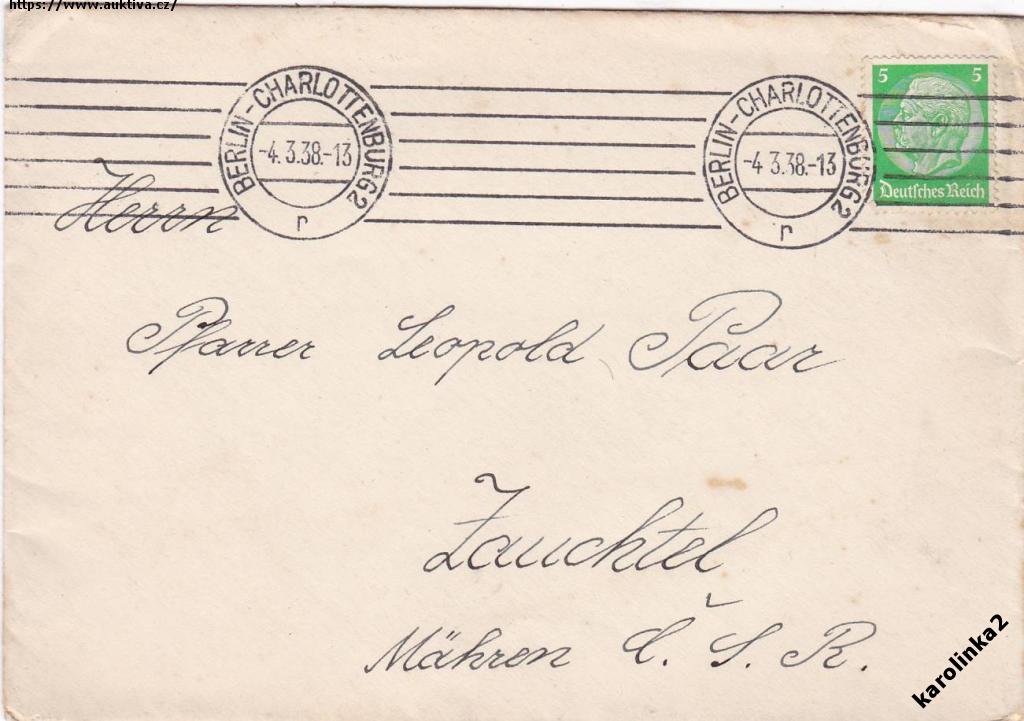 https://www.auktiva.cz/
BERLIN-CHARLOTTENBURG 2
-4.3.38.-13
r
BERLIN-CHARLOTTENBURG 2
-4.3.38.-13
r
5 5
Deutsches Reich
Herrn
Pfarrer Leopold Paar
Zauchtel
Mähren Č. S. R.
karolinka2